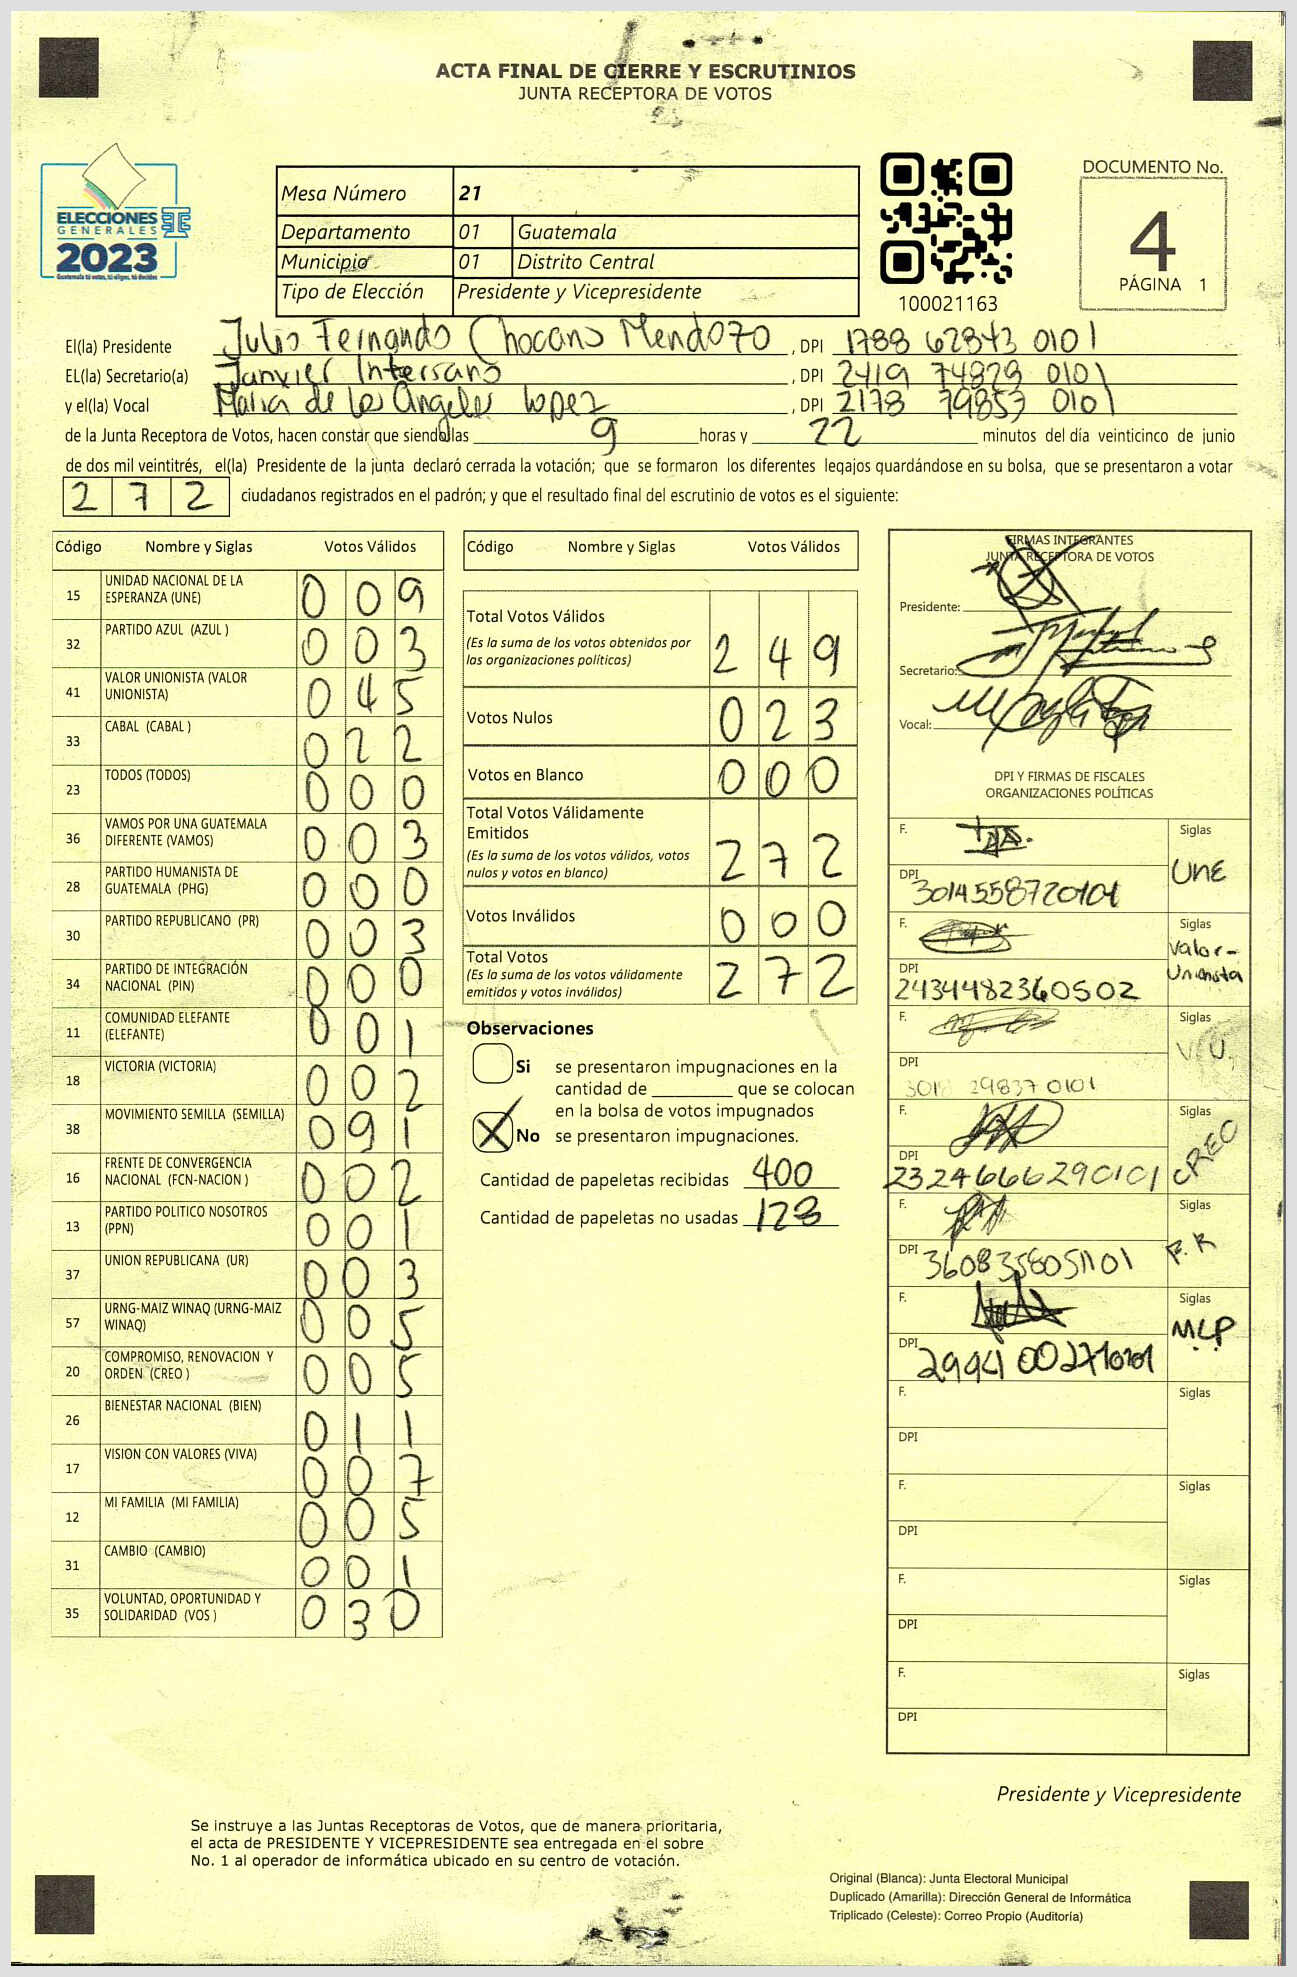 ACTA FINAL DE CIERRE Y ESCRUTINIOS
JUNTA RECEPTORA DE VOTOS
ELECCIONES
GENERALES
2023
Guatemala tú votas, tú eliges, tú decides
Mesa Número 21
Departamento 01 Guatemala
Municipio 01 Distrito Central
Tipo de Elección Presidente y Vicepresidente
100021163
DOCUMENTO No.
4
PÁGINA 1
El(la) Presidente Julio Fernando Chocano Mendozo, DPI 1788 62843 0101
EL(la) Secretario(a) Janvier Intersano, DPI 2419 74829 0101
y el(la) Vocal Maria de los Angeles Lopez, DPI 2178 79853 0101
de la Junta Receptora de Votos, hacen constar que siendo las 9 horas y 22 minutos del día veinticinco de junio
de dos mil veintitrés, el(la) Presidente de la junta declaró cerrada la votación; que se formaron los diferentes legajos quardándose en su bolsa, que se presentaron a votar
272 ciudadanos registrados en el padrón; y que el resultado final del escrutinio de votos es el siguiente:
Código Nombre y Siglas Votos Válidos
15 UNIDAD NACIONAL DE LA ESPERANZA (UNE) 0 0 9
32 PARTIDO AZUL (AZUL ) 0 0 3
41 VALOR UNIONISTA (VALOR UNIONISTA) 0 4 5
33 CABAL (CABAL ) 0 2 2
23 TODOS (TODOS) 0 0 0
36 VAMOS POR UNA GUATEMALA DIFERENTE (VAMOS) 0 0 3
28 PARTIDO HUMANISTA DE GUATEMALA (PHG) 0 0 0
30 PARTIDO REPUBLICANO (PR) 0 0 3
34 PARTIDO DE INTEGRACIÓN NACIONAL (PIN) 0 0 0
11 COMUNIDAD ELEFANTE (ELEFANTE) 0 0 1
18 VICTORIA (VICTORIA) 0 0 2
38 MOVIMIENTO SEMILLA (SEMILLA) 0 9 1
16 FRENTE DE CONVERGENCIA NACIONAL (FCN-NACION ) 0 0 2
13 PARTIDO POLITICO NOSOTROS (PPN) 0 0 1
37 UNION REPUBLICANA (UR) 0 0 3
57 URNG-MAIZ WINAQ (URNG-MAIZ WINAQ) 0 0 5
20 COMPROMISO, RENOVACION Y ORDEN (CREO ) 0 0 5
26 BIENESTAR NACIONAL (BIEN) 0 1 1
17 VISION CON VALORES (VIVA) 0 0 7
12 MI FAMILIA (MI FAMILIA) 0 0 5
31 CAMBIO (CAMBIO) 0 0 1
35 VOLUNTAD, OPORTUNIDAD Y SOLIDARIDAD (VOS ) 0 3 0
Código Nombre y Siglas Votos Válidos
Total Votos Válidos 2 4 9
(Es la suma de los votos obtenidos por
las organizaciones políticas)
Votos Nulos 0 2 3
Votos en Blanco 0 0 0
Total Votos Válidamente
Emitidos 2 7 2
(Es la suma de los votos válidos, votos
nulos y votos en blanco)
Votos Inválidos 0 0 0
Total Votos 2 7 2
(Es la suma de los votos válidamente
emitidos y votos inválidos)
Observaciones
Si se presentaron impugnaciones en la
cantidad de ________ que se colocan
en la bolsa de votos impugnados
X No se presentaron impugnaciones.
Cantidad de papeletas recibidas 400
Cantidad de papeletas no usadas 128
FIRMAS INTEGRANTES
JUNTA RECEPTORA DE VOTOS
Presidente:
Secretario:
Vocal:
DPI Y FIRMAS DE FISCALES
ORGANIZACIONES POLÍTICAS
F. Siglas UNE
DPI 3014558720101
F. Siglas Valor-Unionista
DPI 2434482360502
F. Siglas V.U.
DPI 3018 29837 0101
F. Siglas CREO
DPI 2324666290101
F. Siglas P.R
DPI 3608358051101
F. Siglas MLP
DPI 2994 00271 0101
F. Siglas
DPI
F. Siglas
DPI
F. Siglas
DPI
F. Siglas
DPI
Presidente y Vicepresidente
Se instruye a las Juntas Receptoras de Votos, que de manera prioritaria,
el acta de PRESIDENTE Y VICEPRESIDENTE sea entregada en el sobre
No. 1 al operador de informática ubicado en su centro de votación.
Original (Blanca): Junta Electoral Municipal
Duplicado (Amarilla): Dirección General de Informática
Triplicado (Celeste): Correo Propio (Auditoría)